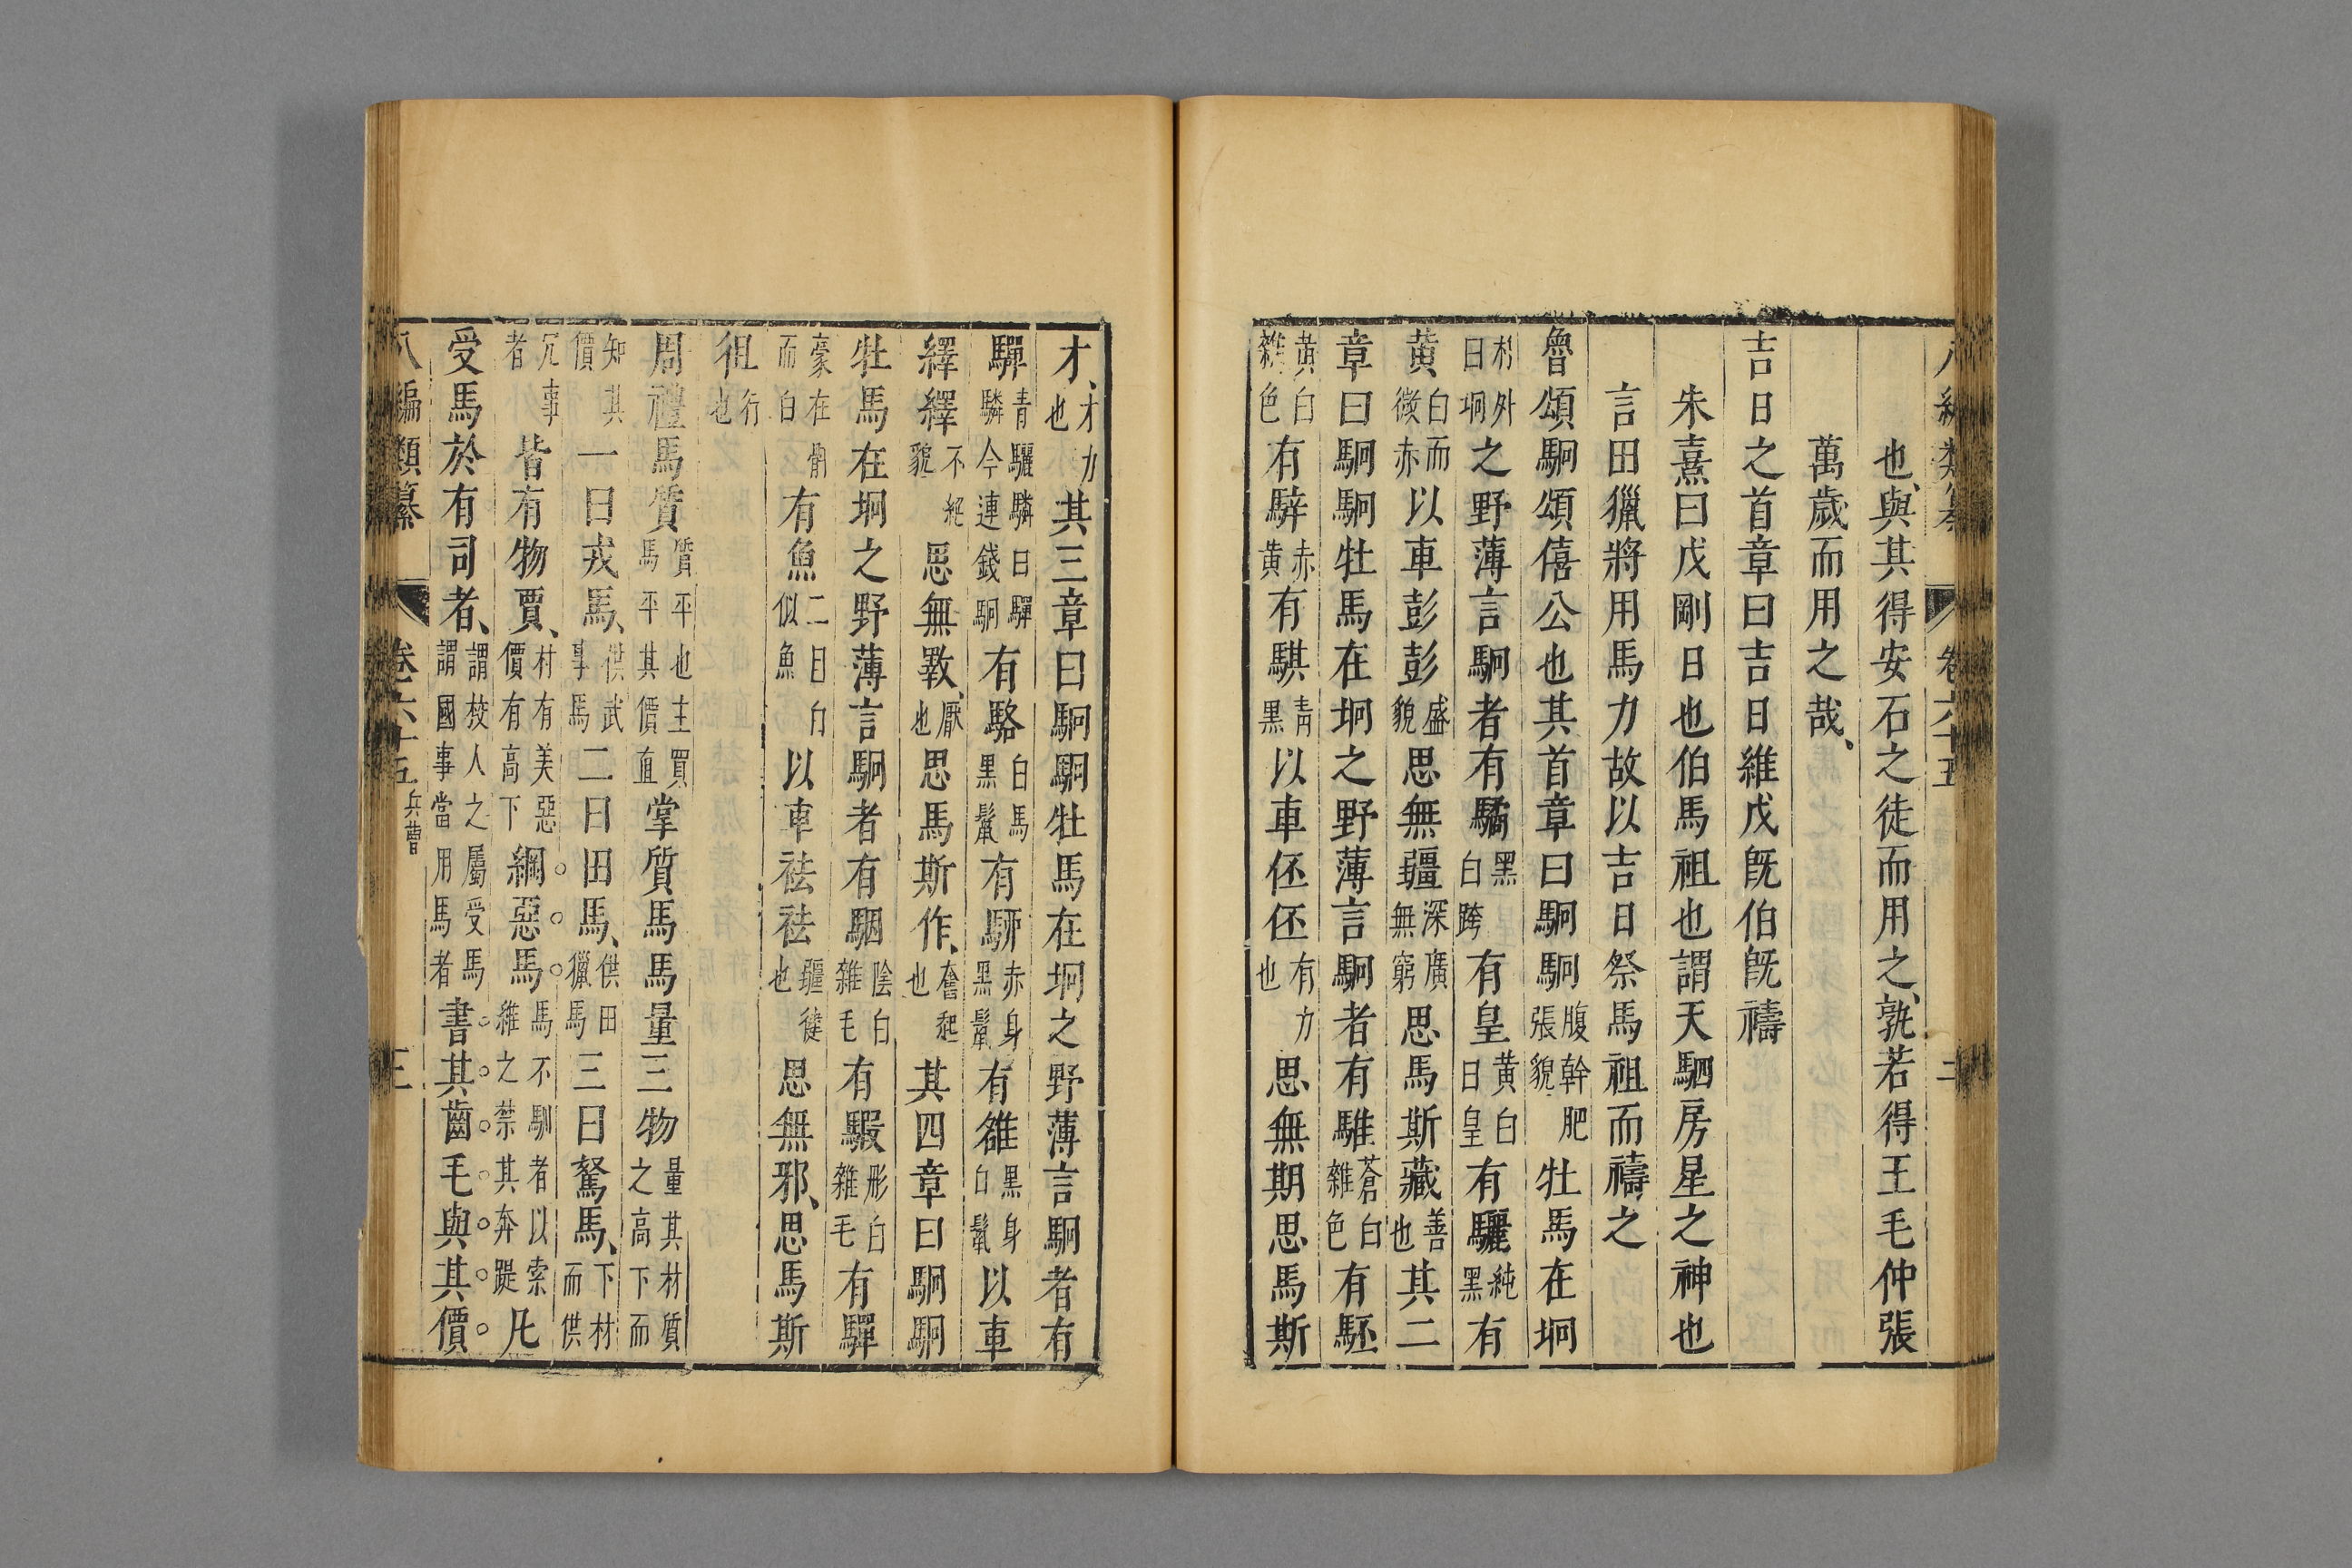 八編類纂 卷六十五 二
也、與其得安石之徒而用之、孰若得王毛仲張
萬歲而用之哉、
吉日之首章曰吉日維戊旣伯旣禱
朱熹曰戊剛日也伯馬祖也謂天駟房星之神也
言田獵將用馬力故以吉日祭馬祖而禱之
魯頌駉頌僖公也其首章曰駉駉腹幹肥張貌牡馬在坰
林外曰坰之野薄言駉者有驈黑白跨有皇黃白曰皇有驪純黑有
黃黃白而微赤以車彭彭盛貌思無疆深廣無窮思馬斯臧善也其二
章曰駉駉牡馬在坰之野薄言駉者有騅蒼白雜色有駓
黃白雜色有騂赤黃有騏靑黑以車伾伾有力也思無期思馬斯
才、才力也其三章曰駉駉牡馬在坰之野薄言駉者有
驒青驪驎曰驒驎今連錢駉有駱白馬黑鬣有駵赤身黑鬣有雒黑身白鬣以車
繹繹不絕貌思無斁、厭也思馬斯作、奮起也其四章曰駉駉
牡馬在坰之野薄言駉者有駰陰白雜毛有騢彤白雜毛有驒
豪在骭而白有魚二目白似魚以車祛祛彊健也思無邪、思馬斯
徂行也
周禮馬質質平也主買馬平其價直掌質馬馬量三物量其材質之高下而
知其價一曰戎馬、供武事馬二曰田馬、供田獵馬三曰駑馬、下材而供
冗事者皆有物賈、材有美惡價有高下綱惡馬馬不馴者以索維之禁其奔踶凡
受馬於有司者、謂校人之屬受馬謂國事當用馬者書其齒毛與其價
八編類纂 卷六十五 兵曹 三